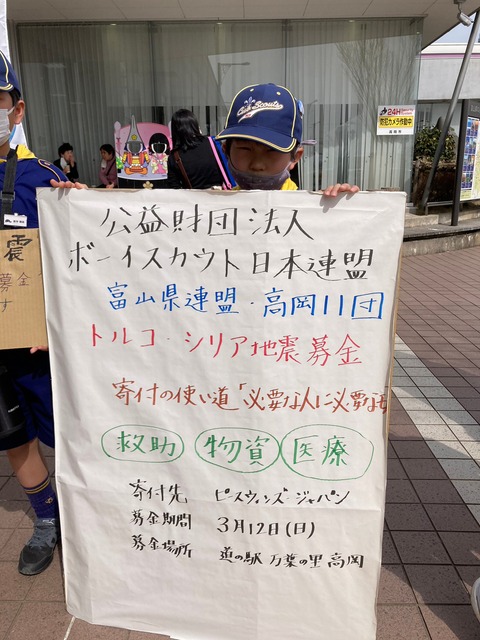 Cub Scouts
24H
防犯カメラ作動中
公益財団法人
ボーイスカウト日本連盟
富山県連盟・高岡11団
トルコ・シリア地震募金
寄付の使い道「必要な人に必要なも
救助 物資 医療
寄付先 ピースウィンズ・ジャパン
募金期間 3月12日(日)
募金場所 道の駅 万葉の里 高岡
震
募金
す